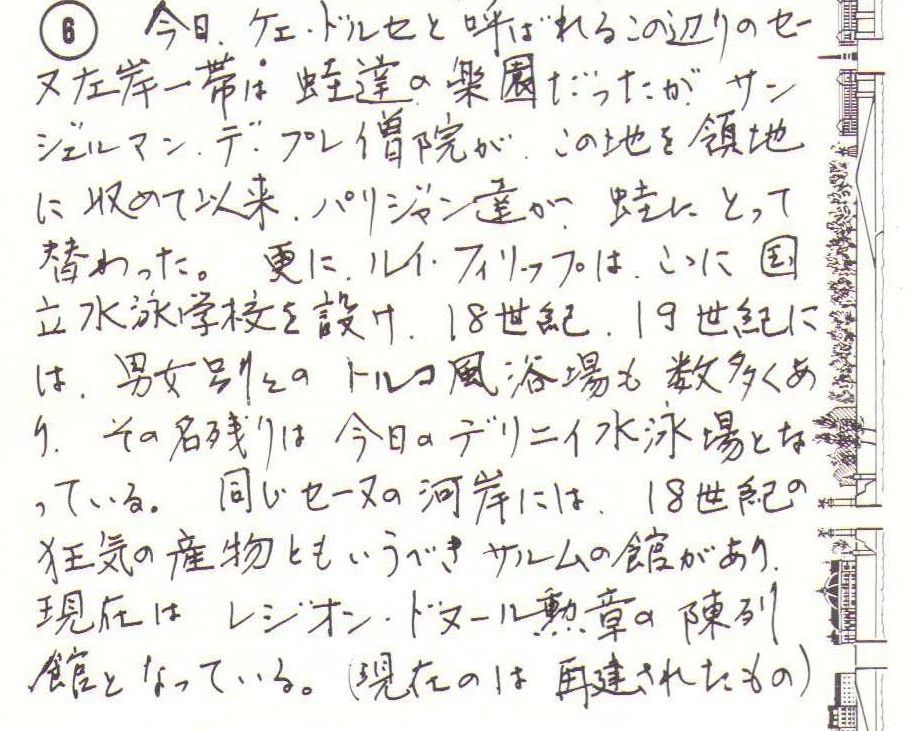 ⑥ 今日、ケェ・ドルセと呼ばれるこの辺りのセー
ヌ左岸一帯は、蛙達の楽園だったが、サン
ジェルマン・デ・プレ僧院が、この地を領地
に収めて以来、パリジャン達が、蛙にとって
替わった。 更に、ルイ・フィリップは、ここに国
立水泳学校を設け、18世紀、19世紀に
は、男女別々の トルコ風浴場も数多くあ
り、その名残りは今日のデリニイ水泳場とな
っている。 同じセーヌの河岸には、18世紀の
狂気の産物ともいうべきサルムの館があり、
現在は レジオン・ドヌール勲章の陳列
館となっている。(現在のは再建されたもの)